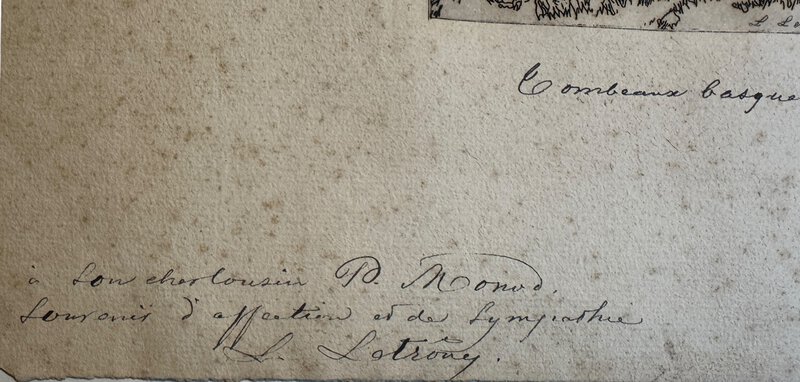 Tombeaux basque
à son cher Cousin P. Monod.
Souvenir d'affection et de Sympathie
L. Letrône.